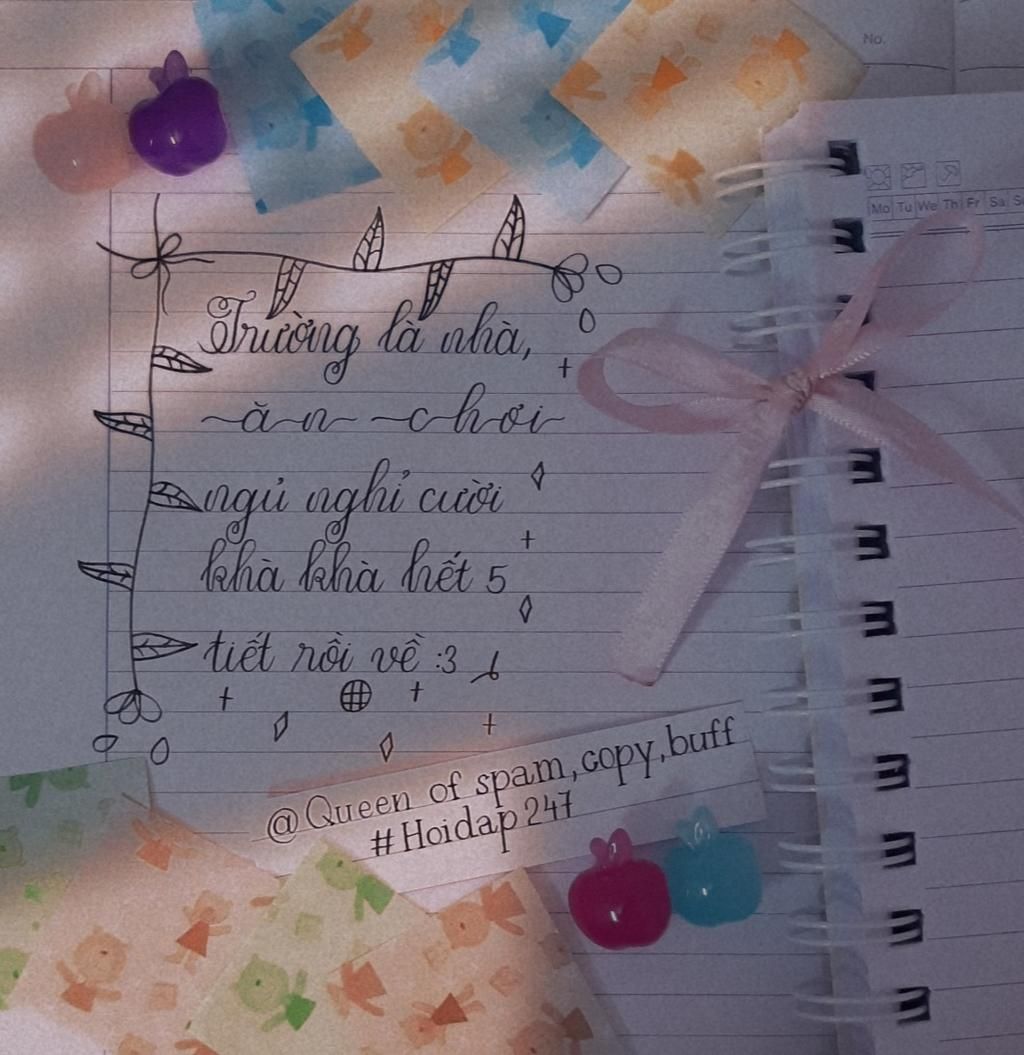 No.
Mo Tu We Th Fr Sa
Trường là nhà,
ăn chơi
ngủ nghỉ cười
khà khà hết 5
tiết rồi về :3
@Queen of spam,copy,buff
#Hoidap247